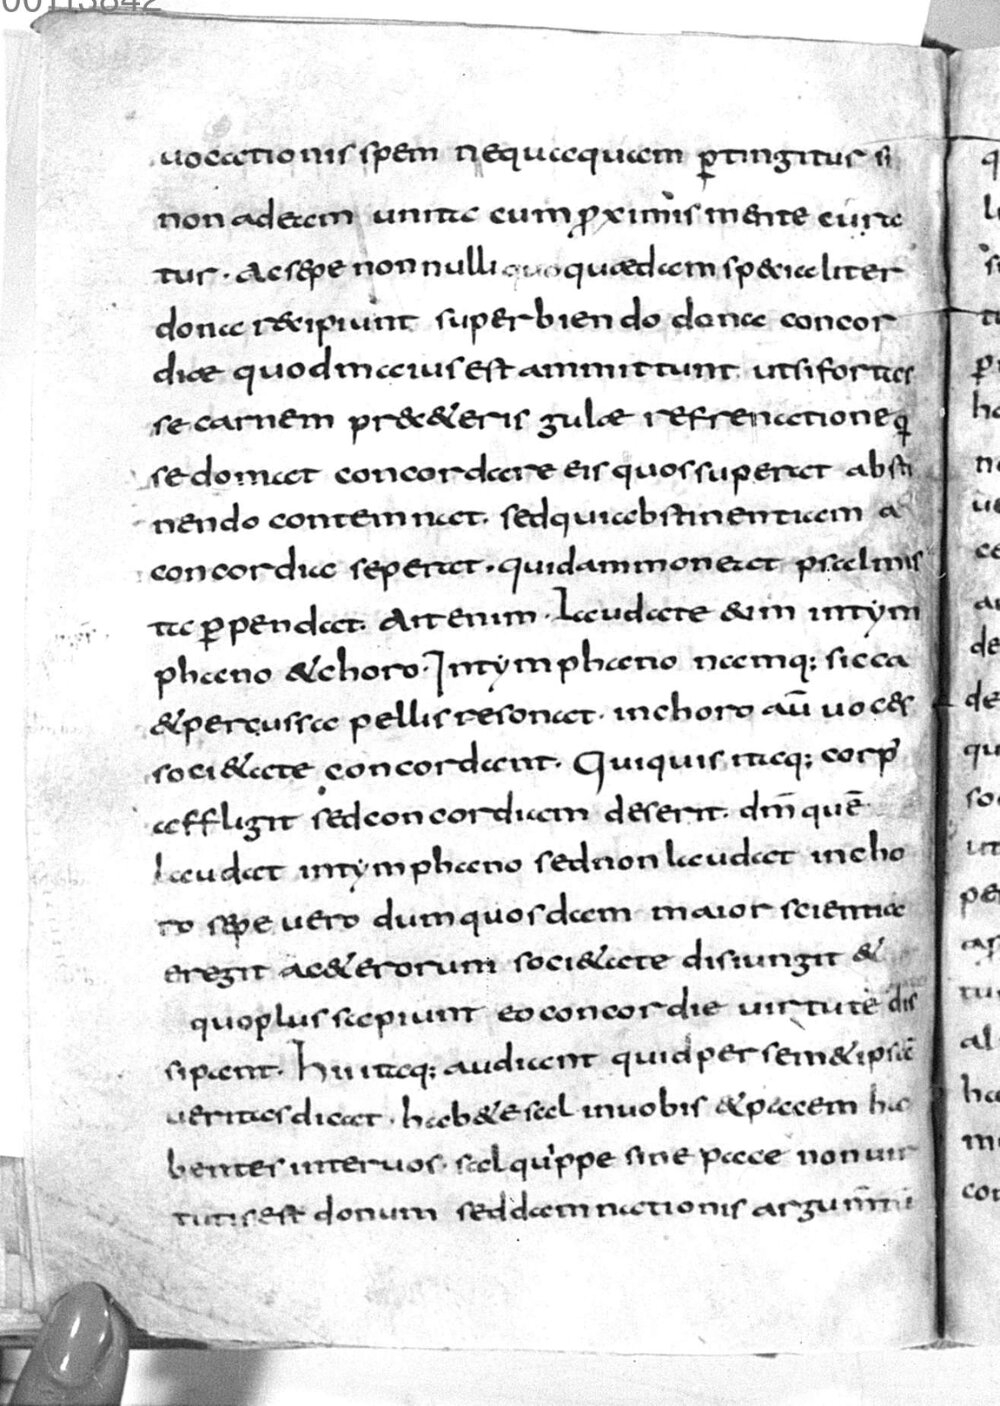 00113842
uocationis spem nequaquam ꝑtingitur si
non ad eam unita cum ꝓximis mente curra
tur · Ac sepe nonnulli quo quædam specialiter
dona recipiunt superbiendo dona concor
diæ quod maius est ammittunt ut si fortas
se carnem præ ceteris gulæ refrenatione q
se domat concordare eis quos superat absti
nendo contemnat. sed qui abstinentiam a
concordia seperat · quid ammoneat psalmis
ta ꝑpendat. Ait enim · Laudate eum in tym
phano & choro · In tymphano namq; sicca
& percussa pellis resonat · in choro aū uoces
sociatæ concordant. Quiquis itaq; corp'
affligit sed concordiam deserit. dm̄ quē
laudat in tymphano sed non laudat in cho
ro sepe uero dum quosdam maior scientia
eregit a ceterorum societate disiungit &
quo plus sapiunt eo concordie uirtute dis
sipant. Hi itaq; audiant quid per semetipsā
ueritas dicat · habete sal in uobis & pacem ha
bentes inter uos · sal quippe sine pace non uir
tutis est donum sed damnationis argumm̄tū